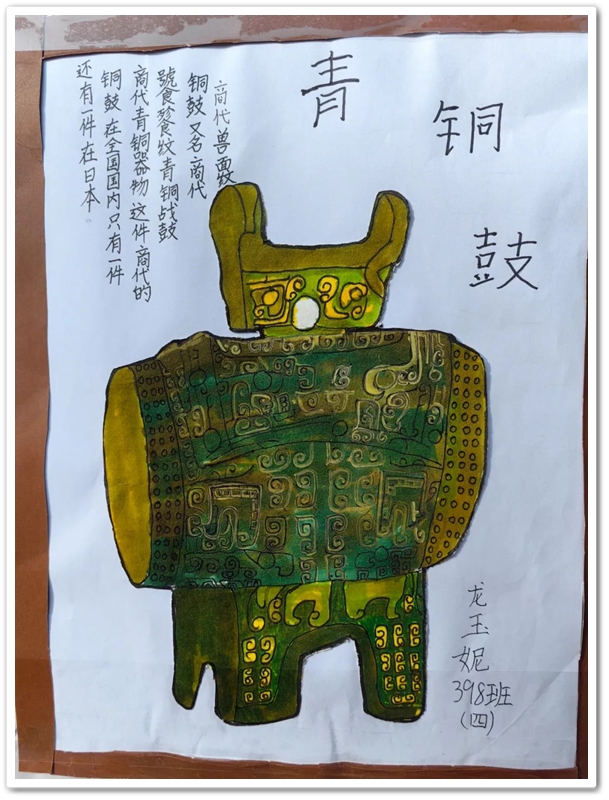 青
铜
鼓
商代兽面纹
铜鼓 又名商代
號食餮纹青铜战鼓
商代青铜器物 这件商代的
铜鼓 在全国国内 只有一件
还有一件 在日本。
龙
玉
妮
398班
(四)